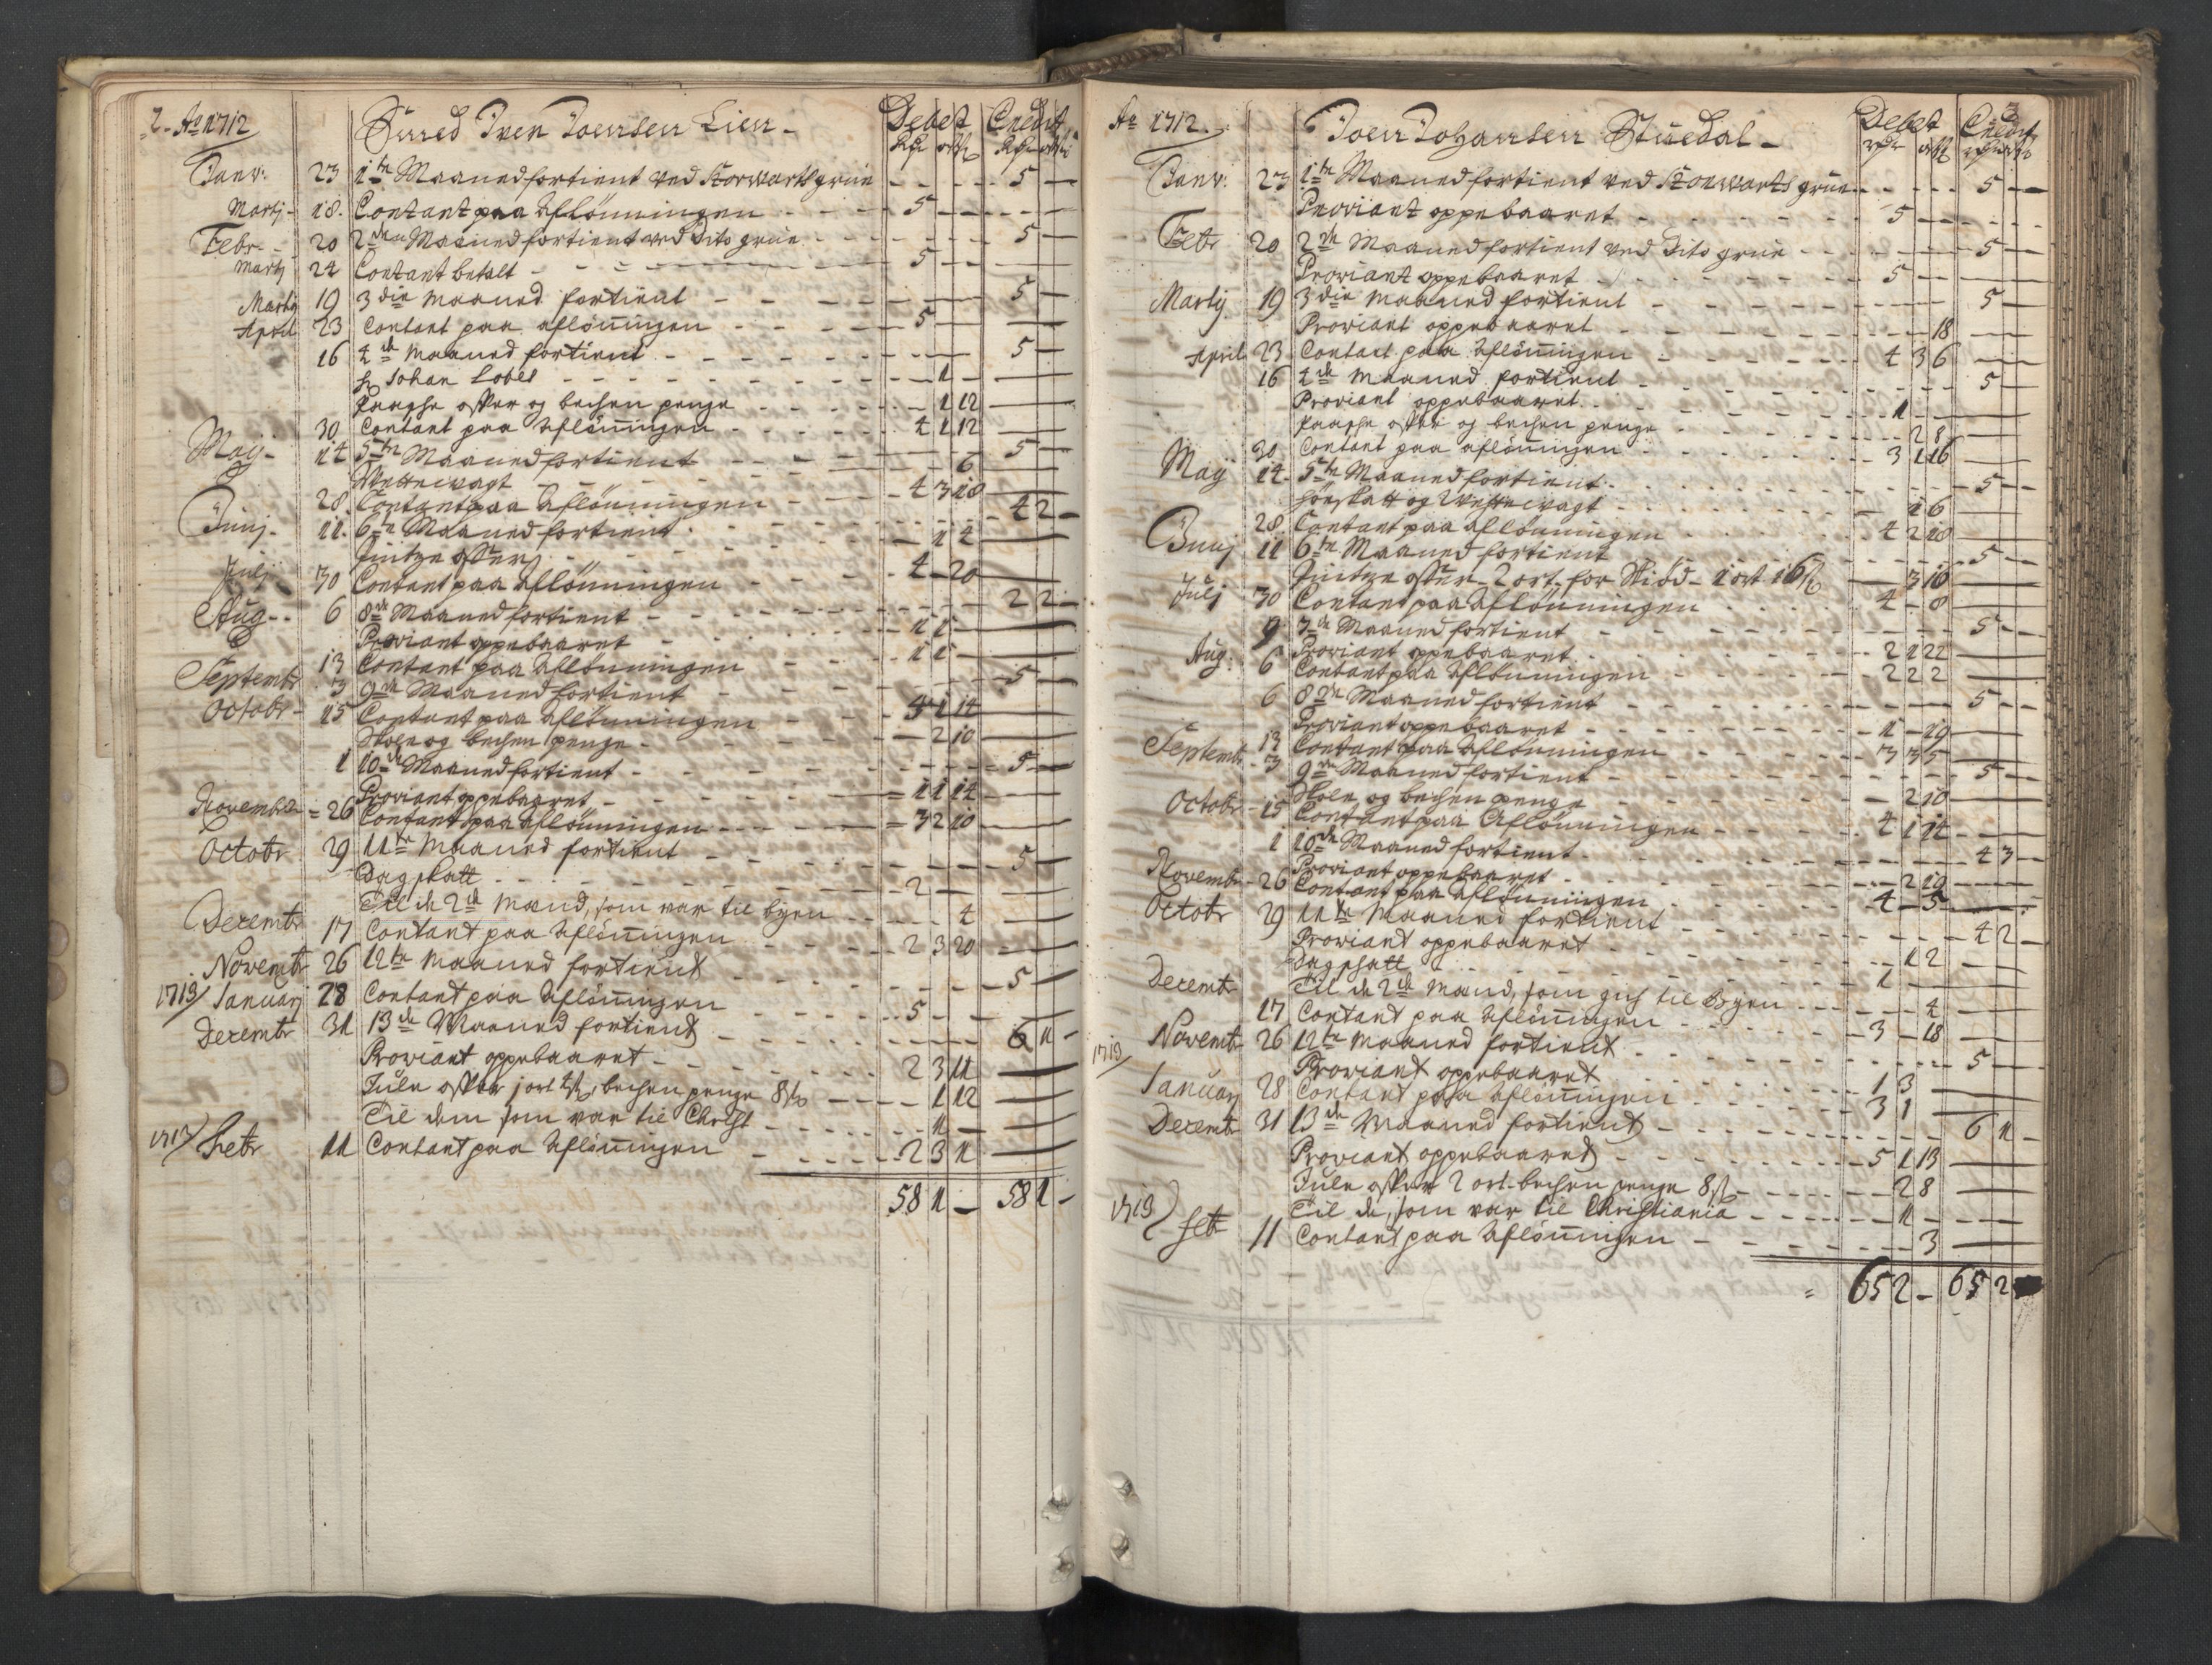 2. Ao 1712 Siured Iver Joensen Lien - Debet Credit
Janv: 23 1te Maaned fortient ved Storwartz grue - - - - 5 -
Martj 18. Contant paa Aflönningen - - - 5 - - - -
Febr. 20 2den Maaned fortient ved dito grue - - - 5 -
Martj 24 Contant betalt - - - 5 - -
Martij 19 3die Maaned fortient - - - 5 -
April 23 Contant paa aflönningen - - - 5 - -
16 4de Maaned fortient - - - 5 -
Johan Lobes - - - 1 -
Paasche offer og bechen penge - - - 1 12
30 Contant paa Aflönningen - - - 4 1 12
Maij 14 5te Maaned fortient - - - 5 -
Wettewagt - - - 6
28. Contant paa Aflönningen - - - 4 3 18
Junj. 11. 6te Maaned fortient - - - 4 2 -
Pintze offer - - - 1 4
Julj 30 Contant paa Aflönningen - - - 4 - 20
Aug. 6 8de Maaned fortient - - - 2 2 -
Proviant oppebaaret - - - 1 1 -
13 Contant paa Aflönningen - - - 1 1 -
Septembr 3 9de Maaned fortient - - - 5 -
Octobr 15 Contant paa Aflönningen - - - 4 1 14
Skole og bechen penge - - - 2 10
1 10de Maaned fortient - - - 5 -
Proviant oppebaaret - - - 1 1 14
November 26 Contant paa Aflönningen - - - 3 2 10
Octobr 29 11te Maaned fortient - - - 5 -
Dagskatt - - - 2 -
Til de 2de Mænd, som var til byen - - - 4
Decembr 17 Contant paa Aflönningen - - - 2 3 20
Novembr 26 12te Maaned fortient - - - 5 -
1713 Januarj 28 Contant paa Aflönningen - - - 5 - -
Decembr 31 13de Maaned fortient - - - 6 1 -
Proviant oppebaaret - - - 2 3 11
Jule offer 1 ort 4 s, bechen penge 8 s - - - 1 12
Til dem som var til Christ - - - 1 -
1713 Febr 11 Contant paa Aflönningen - - - 2 3 1
58 1 - 58 1 -
3
Ao 1712. Joen Johansen Stuedal - Debet Credit
Janv: 23 1te Maaned fortient ved Storwartz grue - - - 5 -
Proviant oppebaaret - - - 5 - -
Febr 20 2de Maaned fortient ved dito grue - - - 5 -
Proviant oppebaaret - - - 5 - -
Martij 19 3die Maaned fortient - - - 5 -
Proviant oppebaaret - - - 18
April 23 Contant paa Aflönningen - - - 4 3 6
16 4de Maaned fortient - - - 5 -
Proviant oppebaaret - - - 1 -
Paasche offer og bechen penge - - - 2 8
30 Contant paa aflönningen - - - 3 1 16
Maij 14. 5te Maaned fortient - - - 5 -
Hönskatt og Wettewagt - - - 1 6
28. Contant paa aflönningen - - - 4 2 18
Junj 11 6te Maaned fortient - - - 5 -
Pintze offer - 2 ort. for Skiöd - 1 ort 16 s - 3 16
Julj 30 Contant paa Aflönningen - - - 4 - 8
9 7de Maaned fortient - - - 5 -
Proviant oppebaaret - - - 2 1 22
Aug. 6 Contant paa Aflönningen - - - 2 2 2
6 8de Maaned fortient - - - 5 -
Proviant oppebaaret - - - 1 - 19
Septembr 13 Contant paa Aflönningen - - - 3 3 5
3 9de Maaned fortient - - - 5 -
Skole og bechen penge - - - 2 10
Octobr 15 Contant paa Aflönningen - - - 4 1 14
1 10de Maaned fortient - - - 4 3 -
Proviant oppebaaret - - - 2 19
Novembr 26 Contant paa Aflönningen - - - 4 - 5
Octobr 29 11te Maaned fortient - - - 4 2 -
Proviant oppebaaret - - - 1 2
Dagskatt - - - 1 -
Til de 2de Mænd, som gik til Byen - - - 4
Decembr 17 Contant paa Aflönningen - - - 3 - 18
Novembr 26 12te Maaned fortient - - - 5 -
Proviant oppebaaret - - - 1 3
1713 Januarj 28 Contant paa Aflönningen - - - 3 1
Decembr 31 13de Maaned fortient - - - 6 1 -
Proviant oppebaaret - - - 5 1 13
Jule offer 2 ort - bechen penge 8 s - - - 2 8
Til de, som var til Christiania - - - 1 -
1713 febr 11 Contant paa Aflönningen - - - 3
65 2 - 65 2